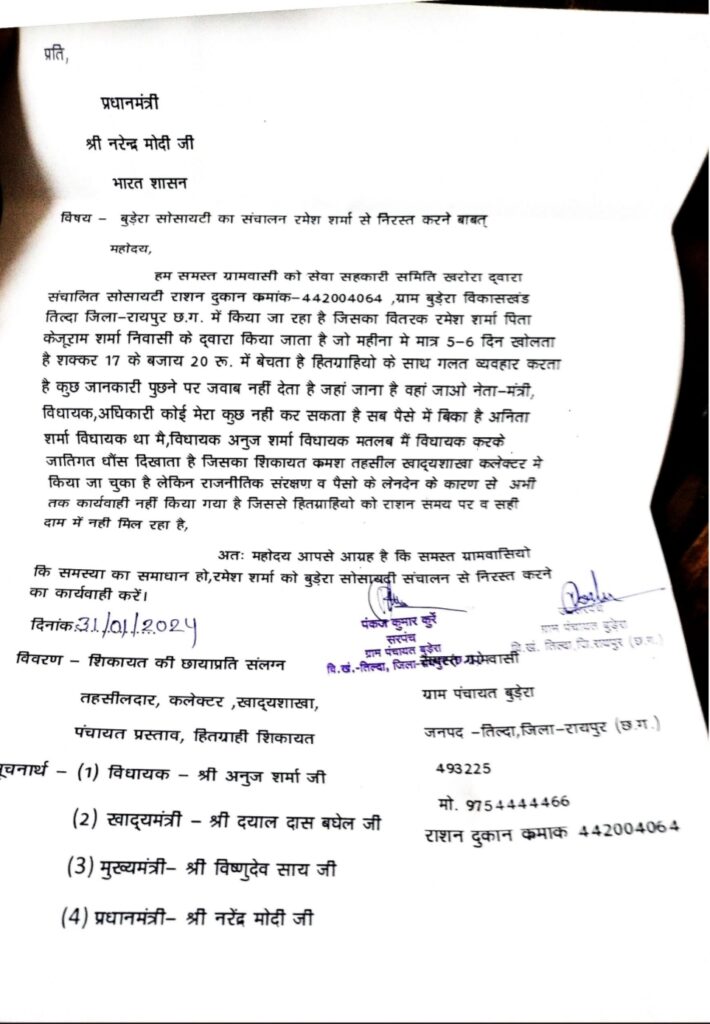 प्रति,
प्रधानमंत्री
श्री नरेन्द्र मोदी जी
भारत शासन
विषय – बुड़ेरा सोसायटी का संचालन रमेश शर्मा से निरस्त करने बाबत्
महोदय,
हम समस्त ग्रामवासी को सेवा सहकारी समिति खरोरा द्वारा
संचालित सोसायटी राशन दुकान कमांक–442004064 ,ग्राम बुड़ेरा विकासखंड
तिल्दा जिला–रायपुर छ.ग. में किया जा रहा है जिसका वितरक रमेश शर्मा पिता
केजूराम शर्मा निवासी के द्वारा किया जाता है जो महीना मे मात्र 5–6 दिन खोलता
है शक्कर 17 के बजाय 20 रू. में बेचता है हितग्राहियो के साथ गलत व्यवहार करता
है कुछ जानकारी पुछने पर जवाब नहीं देता है जहां जाना है वहां जाओ नेता–मंत्री,
विधायक,अधिकारी कोई मेरा कुछ नही कर सकता है सब पैसे में बिका है अनिता
शर्मा विधायक था मै,विधायक अनुज शर्मा विधायक मतलब मैं विधायक करके
जातिगत धौंस दिखाता है जिसका शिकायत कमश तहसील खाद्यशाखा कलेक्टर मे
किया जा चुका है लेकिन राजनीतिक संरक्षण व पैसो के लेनदेन के कारण से अभी
तक कार्यवाही नहीं किया गया है जिससे हितग्राहियो को राशन समय पर व सही
दाम में नही मिल रहा है,
अतः महोदय आपसे आग्रह है कि समस्त ग्रामवासियो
कि समस्या का समाधान हो,रमेश शर्मा को बुड़ेरा सोसायटी संचालन से निरस्त करने
का कार्यवाही करें।
दिनांक 31/01/2024
पंकज कुमार कुर्रे
सरपंच
ग्राम पंचायत बुड़ेरा
वि.खं.-तिल्दा, जिला-रायपुर (छ.ग.)
ग्राम पंचायत बुड़ेरा
वि.खं. तिल्दा,जि.रायपुर (छ.ग.)
विवरण – शिकायत की छायाप्रति संलग्न
समस्त ग्रामवासी
तहसीलदार, कलेक्टर ,खाद्यशाखा,
ग्राम पंचायत बुड़ेरा
पंचायत प्रस्ताव, हितग्राही शिकायत
जनपद –तिल्दा,जिला–रायपुर (छ.ग.)
सूचनार्थ – (1) विधायक – श्री अनुज शर्मा जी
493225
मो. 9754444466
(2) खाद्यमंत्री – श्री दयाल दास बघेल जी
राशन दुकान कमाक 442004064
(3) मुख्यमंत्री– श्री विष्णुदेव साय जी
(4) प्रधानमंत्री– श्री नरेंद्र मोदी जी